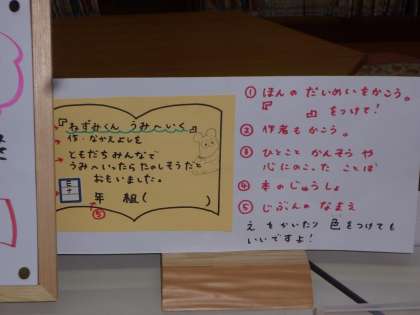 『ねずみくん うみへいく』
作・なかえよしを
ともだちみんなで
うみへいったらたのしそうだと
おもいました。
年 組( )
⑤
① ほんの だいめいをかこう。
『 』をつけて!
② 作者もかこう。
③ ひとこと かんそうや
心にのこった ことば
④ 本のじゅうしょ
⑤ じぶんの なまえ
え をかいたり 色をつけても
いいですよ!